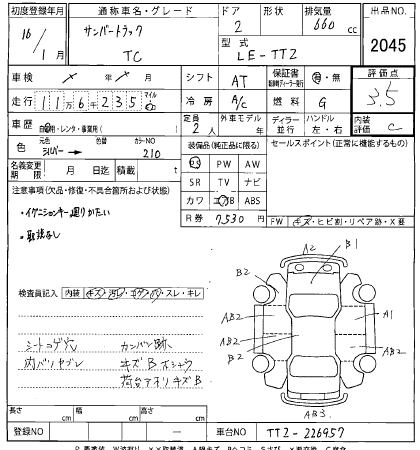 初度登録年月 通称車名・グレード ドア 形状 排気量 出品NO.
16/1月 サンバートラック TC 2 660 cc 2045
型式 LE-TT2
車検 シフト AT 保証書 有・無 評価点
走行 11万6千235 マイル 冷房 A/C 燃料 G 3.5
車歴 自家用・レンタ・事業用( ) 定員 2人 外車モデル年 ディーラー 並行 ハンドル 左・右 内装評価 C
色 シルバー→ 色替 カラーNO 210 装備品(純正品に限る) セールスポイント(正常に機能するもの)
名義変更期限 月 日迄 積載量 t
PS PW AW
SR TV ナビ
カワ エアB ABS
R券 7,530円
注意事項(欠品・修復・不具合箇所および状態)
・イグニションキー廻りかたい
・取扱なし
FW キズ・ヒビ割・リペア跡・X要
検査員記入 内装 キズ・汚レ・コゲ・穴・スレ・キレ
シートコゲ穴 カンバン跡
内バリヤブレ キズB
荷台アオリキズB
A2 B1
B2 B2
AB2 A1
AB2 AB2
B2
AB3
長さ cm 幅 cm 高さ cm
登録NO — 車台NO TT2-226957